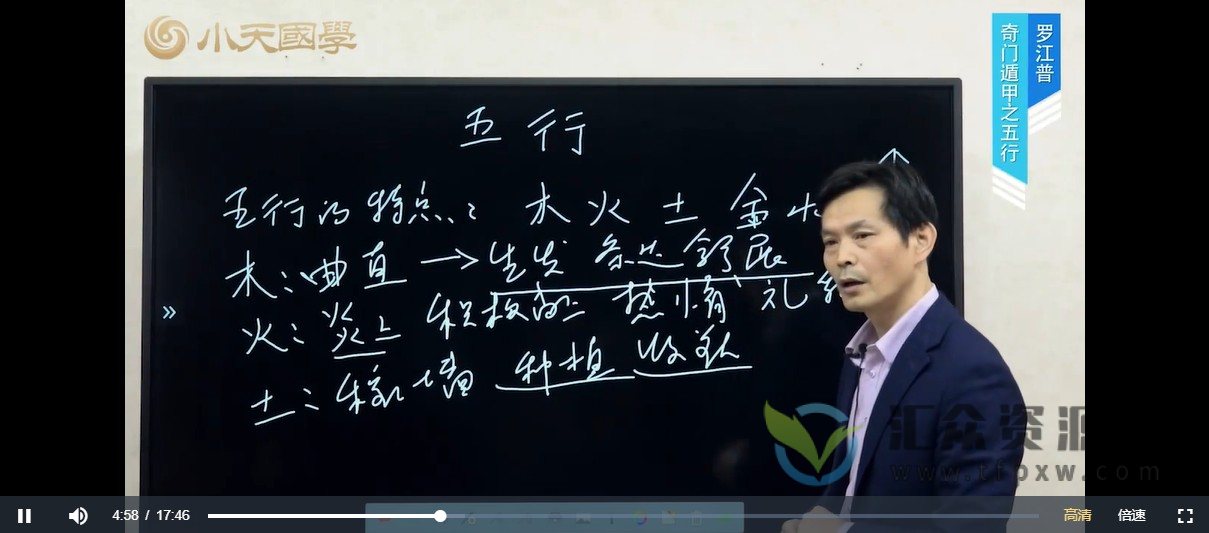 小天國學
罗江普
奇门遁甲之五行
五行
五行的特点: 木火土金水
木:曲直→生发 条达舒展
火:炎上 积极向上 热情、礼
土:稼墙 种植 收获
»
汇众资源
www.tfpxw.com
4:58 / 17:46
高清
倍速